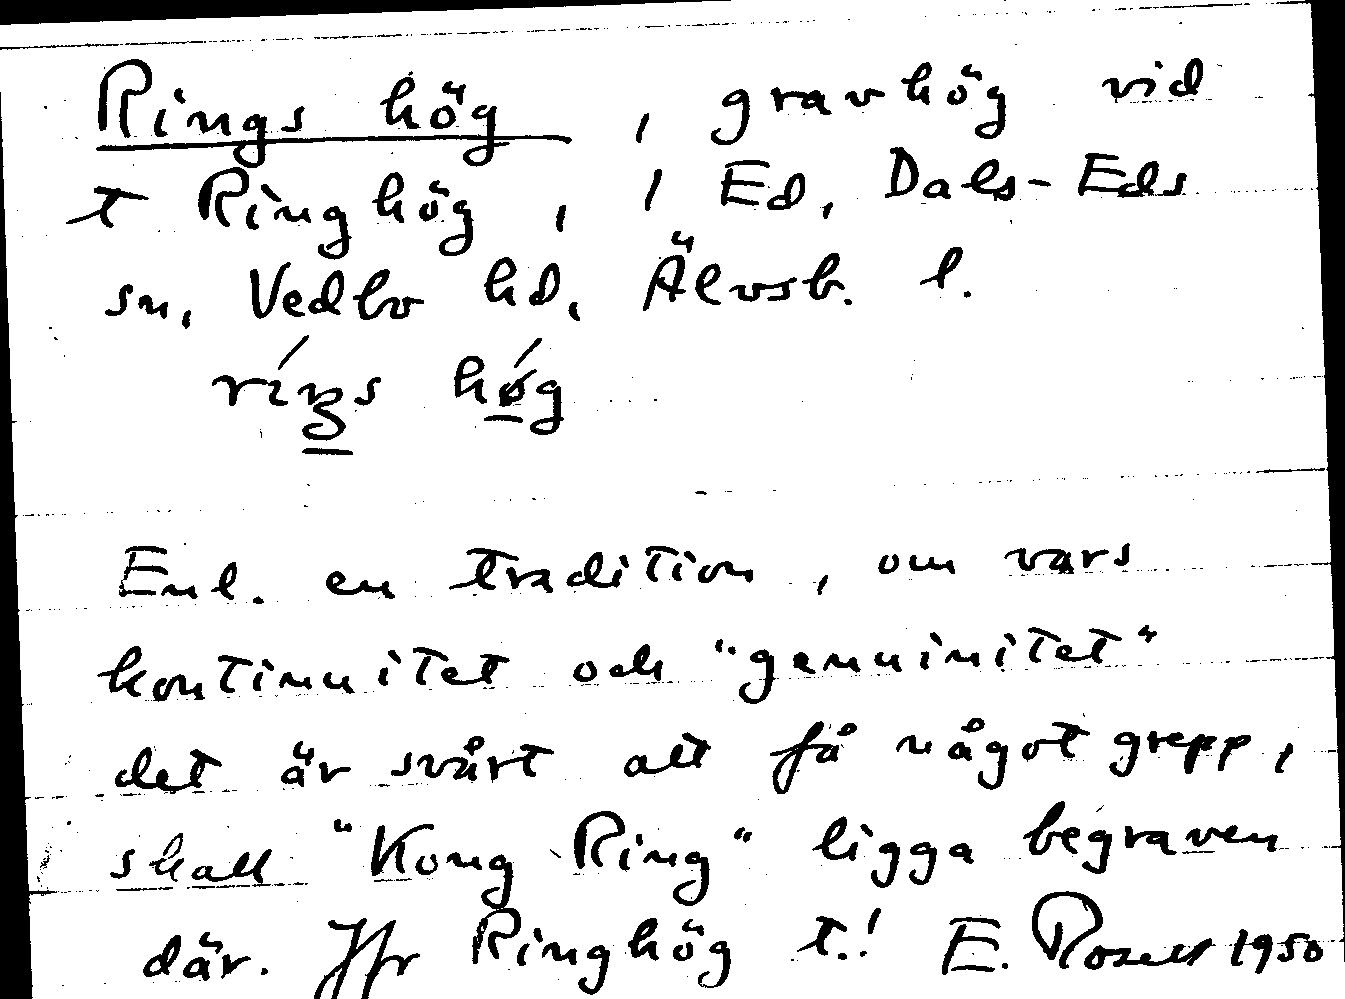 Rings hög, gravhög vid
t Ringhög, 1 Ed, Dals-Eds
sn, Vedbo hd, Älvsb. l.
ríŋs hög
Enl. en tradition, om vars
kontinuitet och "genuinitet"
det är svårt att få något grepp,
skall "Kong Ring" ligga begraven
där. Jfr Ringhög t.! E. Rosell 1950